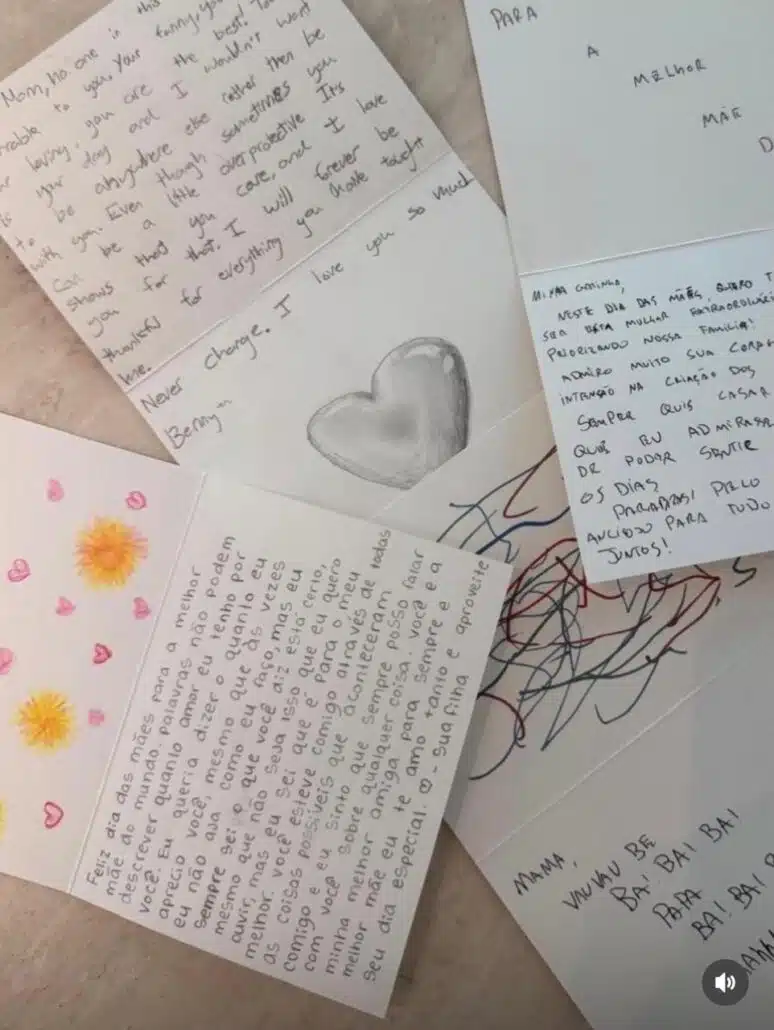 Mom, no one is this
to you. Your funny, you
loving, you are the best! To
is your day and I wouldn't want
to be anywhere else rather then be
with you. Even though sometimes you
can be a little overprotective It's
shows that you care, and I love
you for that. I will forever be
thankful for everything you have taught
me.
Never change. I love you so much
Benny
PARA
A
MELHOR
MÃE
D
MINHA GATINHA,
NESTE DIA DAS MÃES, QUERO T
SER ESTA MULHER EXTRAORDINÁRI
PRIORIZANDO NOSSA FAMÍLIA!
ADMIRO MUITO SUA CORA
INTENSÃO NA CRIAÇÃO DOS
SEMPRE QUIS CASAR
QUE EU ADMIRASSE
DE PODER SENTIR
OS DIAS
PARABÉNS! PELO
ANCIOSO PARA TUDO
JUNTOS!
Feliz dia das mães para a melhor
mãe do mundo. Palavras não podem
descrever quanto amor eu tenho por
você. Eu queria dizer o quanto eu
aprecio você, mesmo que às vezes
eu não aja como eu faço, mas eu
sempre sei o que você diz está certo,
mesmo que não seja isso que eu quero
ouvir, mas eu sei que é para o meu
melhor. Você esteve comigo através de todas
as coisas possíveis que aconteceram
comigo e eu sinto que sempre posso falar
com você sobre qualquer coisa. Você é a
minha melhor amiga para sempre e
melhor mãe eu te amo tanto e aproveite
seu dia especial. - Sua filha
MAMA,
VAUVAU BE
BA! BA! BA!
PAPA
BA! BA! B